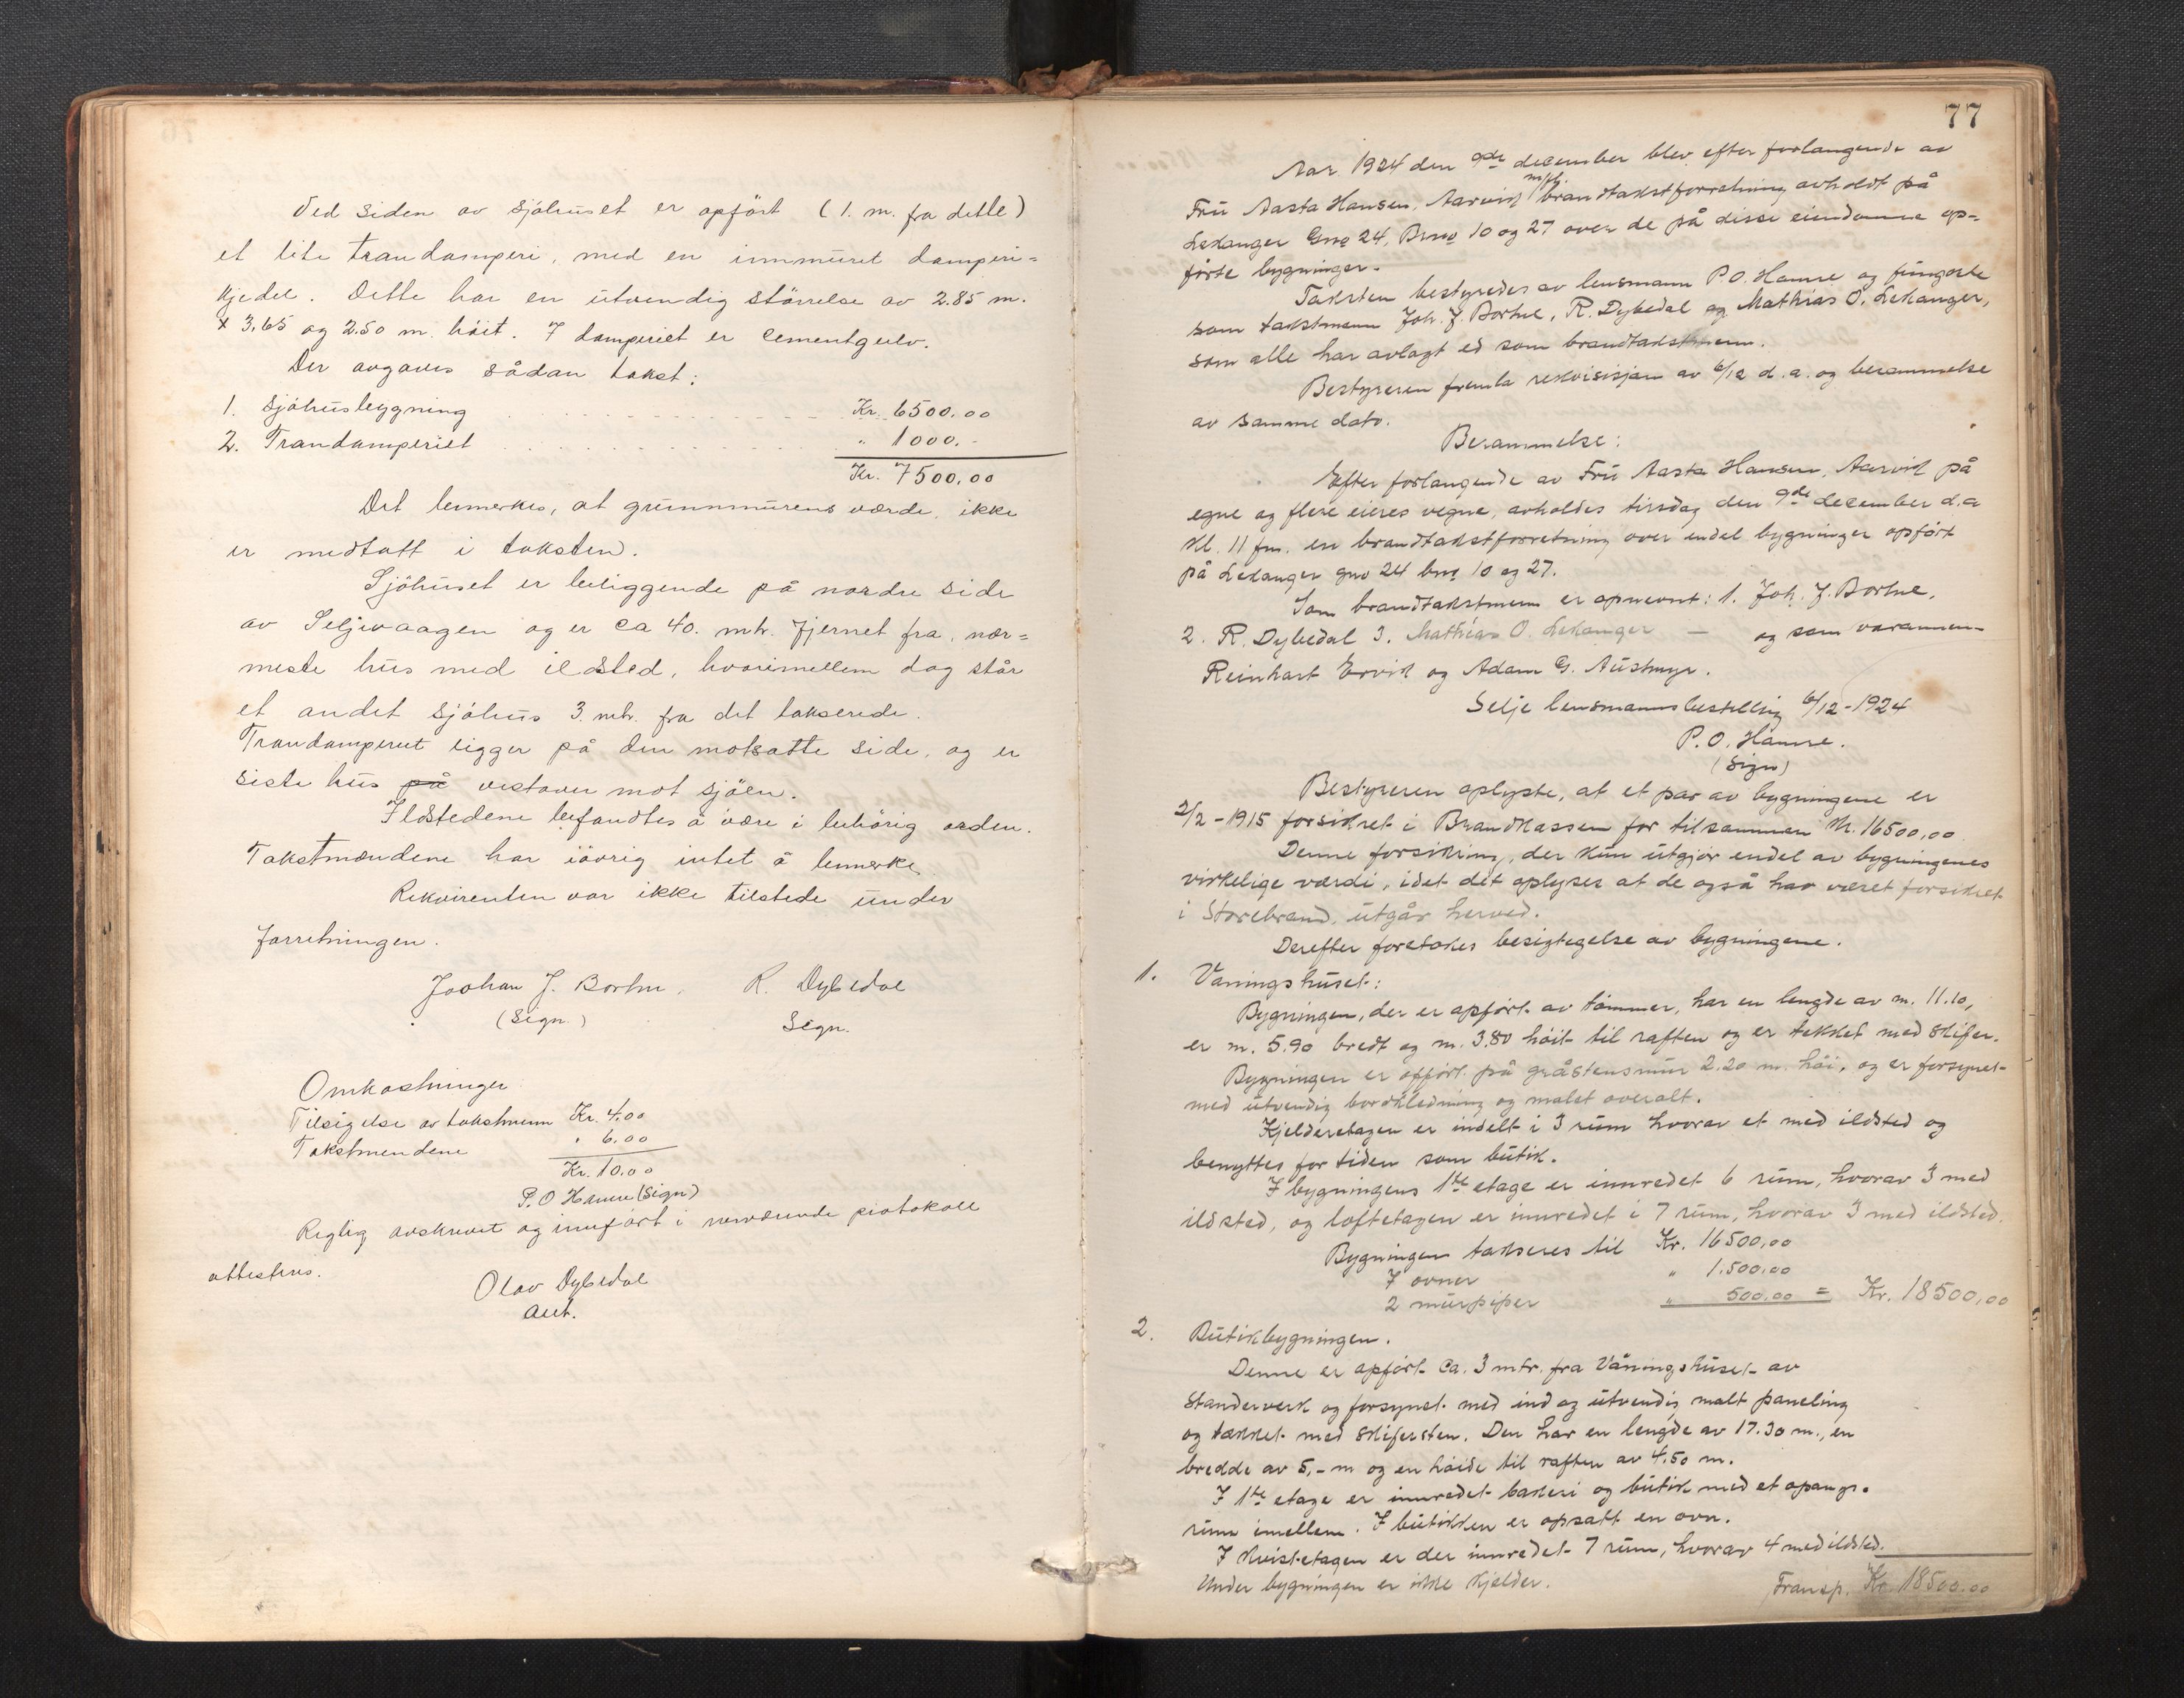 Ved siden av sjøhuset er opført (1. m. fra dette)
et lite trandamperi, med en innmuret damperi=
kjedel. Dette har en utvendig størrelse av 2.85 m.
x 3,65 og 2.50 m. høit. I damperiet er cementgulv.
Der avgaves sådan takst:
1. Sjøhusbygning Kr. 6500.00
2. Trandamperiet " 1000.-
Kr. 7500.00
Det bemerkes, at grunnmurens værde, ikke
er medtatt i taksten.
Sjøhuset er beliggende på nordre side
av Seljevaagen og er ca 40. mtr. fjernet fra, nær=
meste hus med ilsted, hvorimellem dog står
et andet sjøhus 3. mtr. fra det takserede.
Trandamperiet ligger på den motsatte side, og er
siste hus på vestover mot sjøen.
Ildstedene befandtes å være i behørig orden.
Takstmændene har iøvrig intet å bemerke
Rekvirenten var ikke tilstede under
forretningen.
Joohan J. Bortne. R. Dybedal
(Sign.) Sign.
Omkostninger
Tilsigelse av takstmenn Kr. 4.00
Takstmendene " 6.00
Kr. 10.00
P. O Hamre (Sign)
Regtig avskrevet og innført i nerværende protokoll
attesteres.
Olav Dybedal
aut.
77
Aar 1924 den 9de december blev efter forlangende av
m/fl.
Fru Aasta Hansen, Aarvik brandtakstforretning avholdt på
Lekanger Gno 24, Bruno 10 og 27 over de på disse eiendomme op=
førte bygninger.
Taksten bestyredes av lensmann P.O. Hamre og fungerte
som takstmenn Joh. J. Bortne, R. Dybedal og Mathias O. Lekanger,
som alle har avlagt ed som brandtakstmenn.
Bestyreren fremla rekvisisjon av 6/12 d.a. og berammelse
av samme dato.
Berammelse:
Efter forlangende av Fru Aasta Hansen, Aarvik på
egne og flere eieres vegne, avholdes tirsdag den 9de december d.a
kl. 11 fm. en brandtakstforretning over endel bygninger opført
på Lekanger gno 24 bno 10 og 27.
Som brandtakstmenn er opnevnt: 1. Joh. J. Bortne.
2. R. Dybedal 3. Mathias O. Lekanger — og som varamenn
Reinhart Ervik og Adam G. Austmyr.
Selje lensmannsbestilling 6/12-1924
P. O. Hamre.
(Sign)
Bestyreren oplyste, at et par av bygningene er
2/2-1915 forsikret i Brandkassen for tilsammen kr. 16500,00
Denne forsikring, der kun utgjør endel av bygningenes
virkelige værdi, idet det oplyses at de også har været forsikret
i Storebrand, utgår herved.
Derefter foretokes besigtegelse av bygningene.
1. Vaningshuset:
Bygningen, der er opført av tømmer, har en lengde av m. 11.10,
er m. 5.90 bredt og m. 3.80 høit til raften og er tekket med skifer.
Bygningen er opført på gråstensmur 2.20 m. høi, og er forsynet
med utvendig bordkledning og malet overalt.
Kjelderetagen er indelt i 3 rum hvorav et med ildsted og
benyttes for tiden som butik.
I bygningens 1te etage er innredet 6 rum, hvorav 3 med
ildsted, og loftetagen er innredet i 7 rum, hvorav 3 med ildsted.
Bygningen takseres til Kr. 16500,00
7 ovner " 1.500.00
2 murpiper " 500.00 = Kr. 18500,00
2. Butikbygningen.
Denne er opført ca. 3 mtr. fra Våningshuset av
standerverk og forsynet med ind og utvendig malt paneling
og tækket med skifersten. Den har en lengde av 17.30 m., en
bredde av 5,- m og en høide til raften av 4.50 m.
I 1te etage er innredet bakeri og butik med et
rum imellem. I butikken er opsatt en ovn.
I kvistetagen er der innredet 7 rum, hvorav 4 med ildsted.
Under bygningen er ikke kjelder.
Transp. Kr. 18500.00